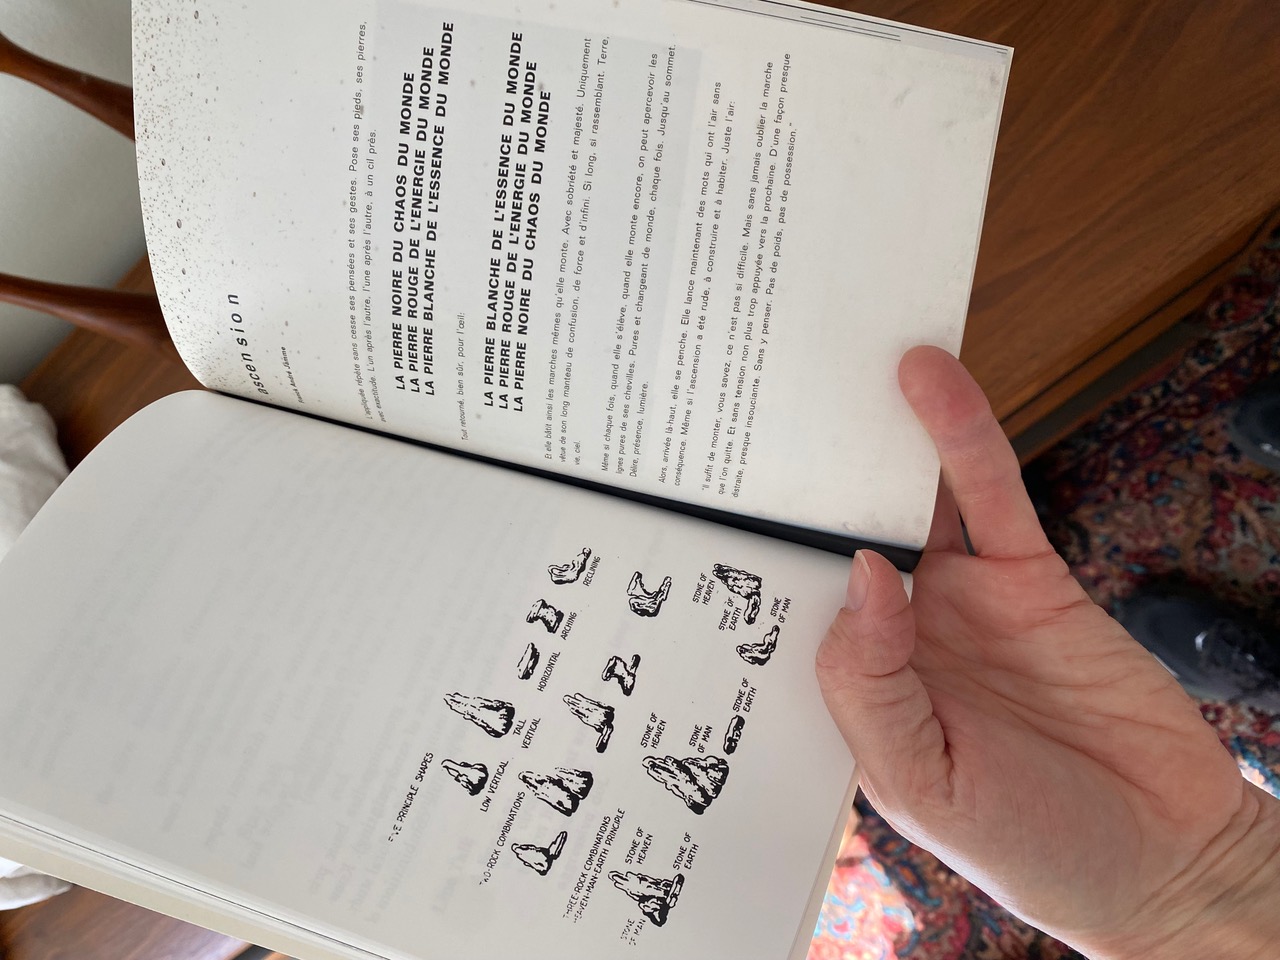 FIVE PRINCIPLE SHAPES
LOW VERTICAL
TALL
VERTICAL
HORIZONTAL
ARCHING
RECLINING
TWO-ROCK COMBINATIONS
THREE-ROCK COMBINATIONS
HEAVEN-MAN-EARTH PRINCIPLE
STONE
OF MAN
STONE OF
HEAVEN
STONE OF
EARTH
STONE OF
HEAVEN
STONE
OF MAN
STONE OF
EARTH
STONE OF
HEAVEN
STONE OF
EARTH
STONE
OF MAN
ascension
André Jamme
L'appliquée répète sans cesse ses pensées et ses gestes. Pose ses pieds, ses pierres,
avec exactitude. L'un après l'autre, l'une après l'autre, à un cil près.
LA PIERRE NOIRE DU CHAOS DU MONDE
LA PIERRE ROUGE DE L'ENERGIE DU MONDE
LA PIERRE BLANCHE DE L'ESSENCE DU MONDE
Tout retourné, bien sûr, pour l'œil:
LA PIERRE BLANCHE DE L'ESSENCE DU MONDE
LA PIERRE ROUGE DE L'ENERGIE DU MONDE
LA PIERRE NOIRE DU CHAOS DU MONDE
Et elle bâtit ainsi les marches mêmes qu'elle monte. Avec sobriété et majesté. Uniquement
vêtue de son long manteau de confusion, de force et d'infini. Si long, si rassemblant. Terre,
vie, ciel.
Même si chaque fois, quand elle s'élève, quand elle monte encore, on peut apercevoir les
lignes pures de ses chevilles. Pures et changeant de monde, chaque fois. Jusqu'au sommet.
Délire, présence, lumière.
Alors, arrivée là-haut, elle se penche. Elle lance maintenant des mots qui ont l'air sans
conséquence. Même si l'ascension a été rude, à construire et à habiter. Juste l'air:
"Il suffit de monter, vous savez, ce n'est pas si difficile. Mais sans jamais oublier la marche
que l'on quitte. Et sans tension non plus trop appuyée vers la prochaine. D'une façon presque
distraite, presque insouciante. Sans y penser. Pas de poids, pas de possession."